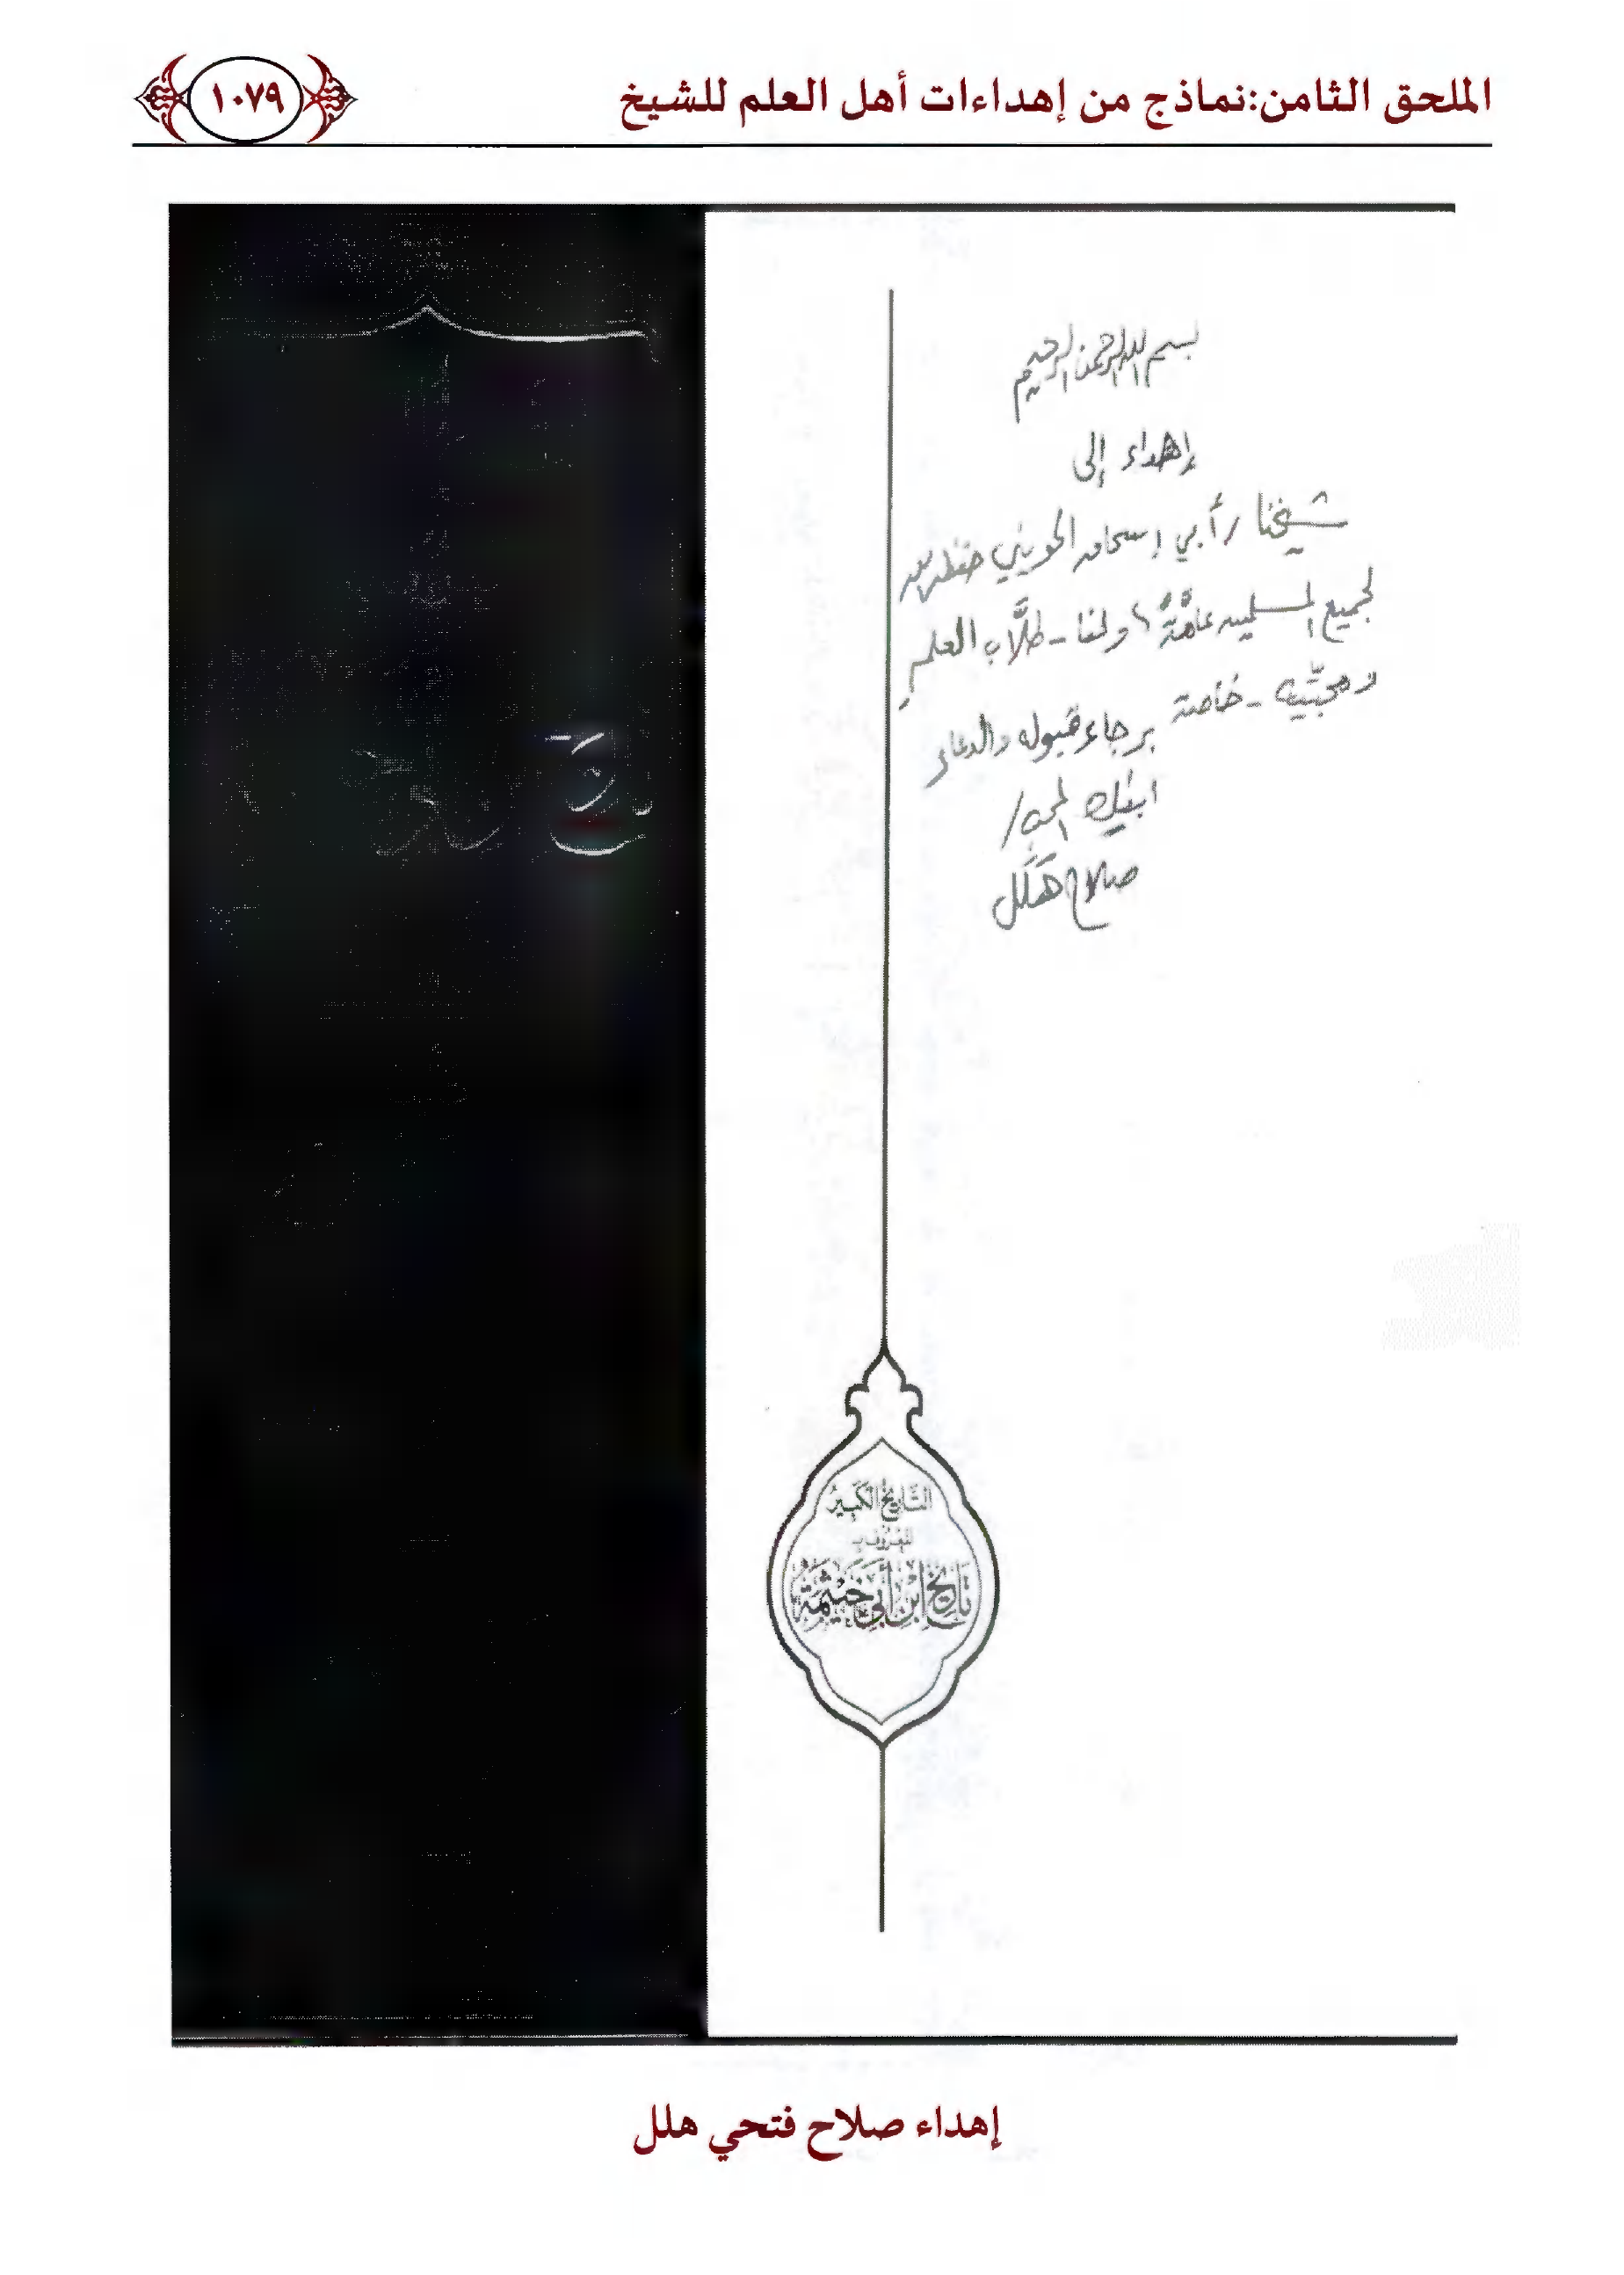 الملحق الثامن:نماذج من إهداءات أهل العلم للشيخ
١٠٧٩
بسم الله الرحمن الرحيم
إهداء إلى
شيخنا / أبي إسحاق الحويني حفظه الله
لجميع المسلمين عامَّةً، ولنا - طلَّاب العلم
ومحبِّيه - خاصة
برجاء قبوله والدعاء
ابنك المحب /
صلاح هَلَل
التَّارِيخُ الكَبِيرُ
المَعْرُوفُ بِ
تَارِيخِ ابْنِ أَبِي خَيْثَمَةَ
إهداء صلاح فتحي هلل